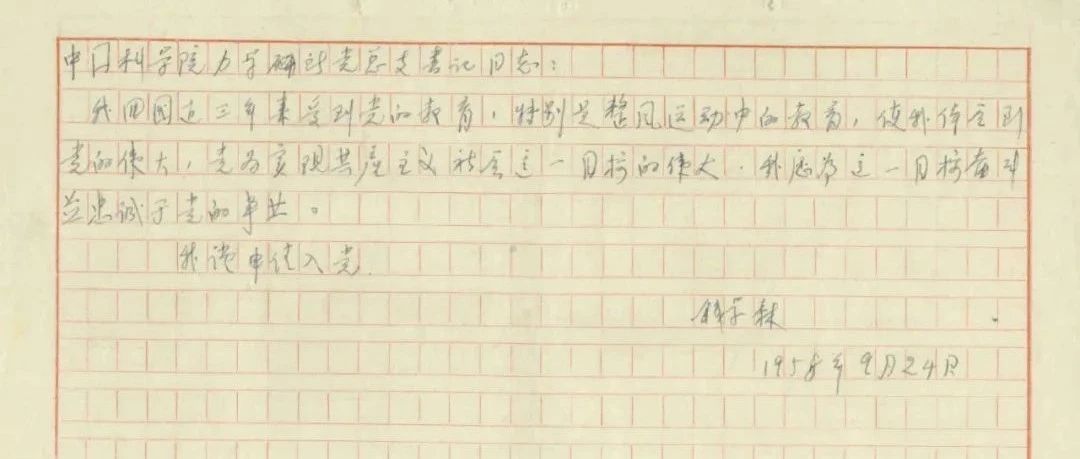 中国科学院力学研所党总支书记同志：
我回国近三年来受到党的教育，特别是整风运动中的教育，使我体会到
党的伟大，党为实现共产主义社会这一目标的伟大。我愿为这一目标奋斗
并忠诚于党的事业。
我谨申请入党。
钱学森
1958年9月24日